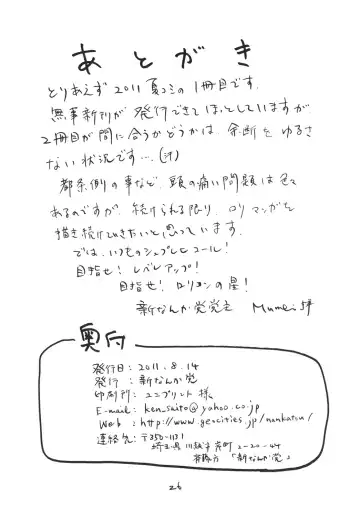 あとがき
とりあえず2011夏コミの1冊目です。
無事新刊が発行できてほっとしていますが
2冊目が間に合うかどうかは、余断をゆるさ
ない状況です…(汗)
都条例の事など、頭の痛い問題は色々
あるのですが、続けられる限り、ロリマンガを
描き続けていきたいと思っています。
では、いつものシュプレヒコール!
目指せ!レベルアップ!
目指せ!ロリコンの星!
新なんか党党主 Mumei
奥付
発行日:2011.8.14
発行:新なんか党
印刷所:ユニプリント様
E-mail:ken_saito@yahoo.co.jp
Web:http://www.geocities.jp/nankatou/
連絡先:〒350-1131
埼玉県川越市岸町2-20-44
斉藤方「新なんか党」
26